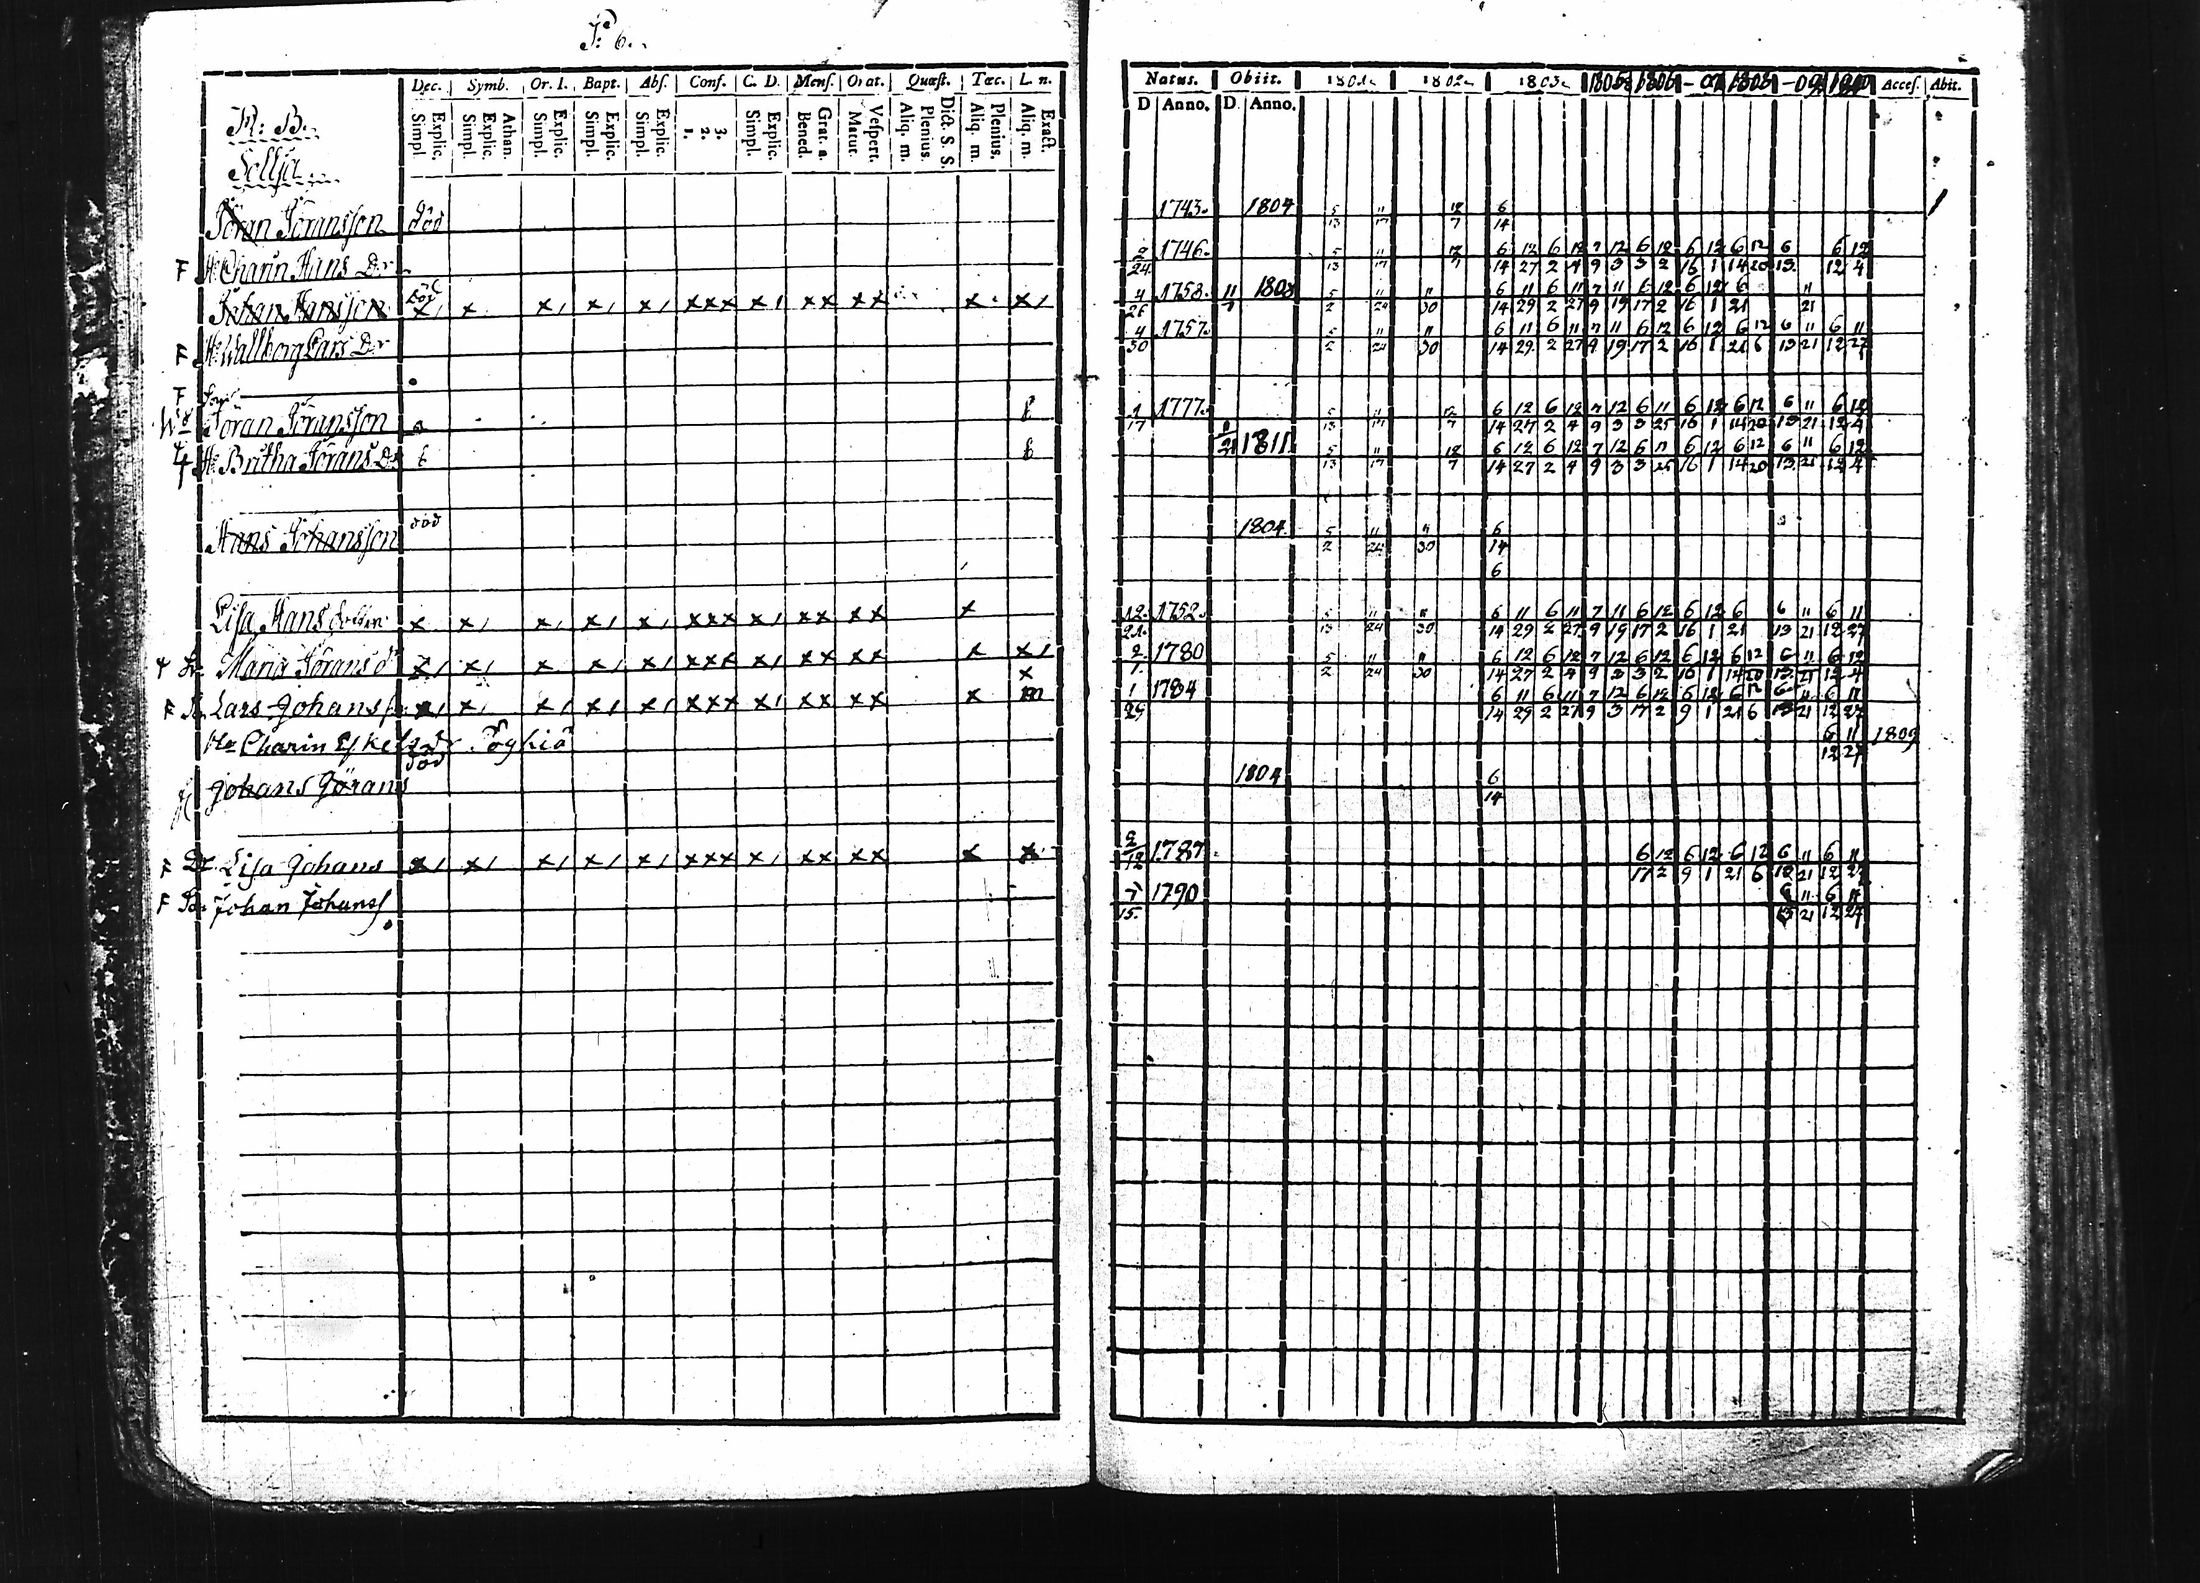 P: 6.
Dec. Symb. Or. I. Bapt. Abs. Conf. C. D. Mens. Orat. Quæst. Tæc. L. n.
Explic. Simpl. Athan. Explic. Simpl. Explic. Simpl. Explic. Simpl. Explic. Simpl. 3. 2. 1. Explic. Simpl. Grat. a. Bened. Vespert. Matut. Dict. S. S. Plenius. Aliq. m. Plenius. Aliq. m. Exact. Aliq. m.
Natus. Obiit. 1801. 1802. 1803. 1805 1806 - 07 1808 - 09 1810 Acces. Abit.
D Anno. D. Anno.
N: B.
Jöran Jöransson död 1743. 1804 5 11 12 6
13 17 7 14
F H: Charin Hans Dr 2 1746. 5 11 12 6 12 6 12 7 12 6 12 6 12 6 12 6 6 12
24 13 17 7 14 27 2 4 9 3 3 2 16 1 14 20 13 12 4
Johan Hansson död x 1 x x 1 x 1 x 1 x x x x 1 x x x x x x 1 4 1758. 11 1808 5 11 11 6 11 6 11 7 11 6 12 6 12 6 11
26 2 24 30 14 29 2 27 9 19 17 2 16 1 21 21
F H: Wallborg Lars Dr 4 1757. 5 11 11 6 11 6 11 7 11 6 12 6 12 6 12 6 11 6 11
30 2 24 30 14 29 2 27 9 19 17 2 16 1 21 6 13 21 12 27
F
Jöran Jöransson 1 1777. 5 11 12 6 12 6 12 7 12 6 11 6 12 6 12 6 11 6 12
17 13 17 7 14 27 2 4 9 3 3 25 16 1 14 20 13 21 12 4
H: Britha Jörans Dr 21 1811 5 11 12 6 12 6 12 7 12 6 11 6 12 6 12 6 11 6 12
13 17 7 14 27 2 4 9 3 3 25 16 1 14 20 13 21 12 4
Hans Johansson död 1804. 5 11 11 6
2 24 30 14
6
Lisa Hans x x 1 x 1 x 1 x 1 x x x x 1 x x x x x 12. 1752. 5 11 11 6 11 6 11 7 11 6 12 6 12 6 6 11 6 11
21. 13 24 30 14 29 2 27 9 19 17 2 16 1 21 13 21 12 27
Maria Jörans dr x 1 x 1 x x 1 x 1 x x x x 1 x x x x x x 1 2 1780 5 11 11 6 12 6 12 7 12 6 12 6 12 6 12 6 11 6 12
1. 2 24 30 14 27 2 4 9 3 3 2 16 1 14 20 13 21 12 4
F Lars Johans x 1 x 1 x 1 x 1 x 1 x x x x 1 x x x x x 1 1784 6 11 6 11 7 12 6 12 6 12 6 12 6 11 6 11
29 14 29 2 27 9 3 17 2 9 1 21 6 13 21 12 27
Charin 6 11 1809
12 27
Johans Görans död 1804 6
14
F Dr Lisa Johans x 1 x 1 x 1 x 1 x 1 x x x x 1 x x x x x 2 1787. 6 12 6 12 6 12 6 11 6 11
12 17 2 9 1 21 6 13 21 12 27
F Johan Johans 7 1790 6 11 6 11
15. 13 21 12 27